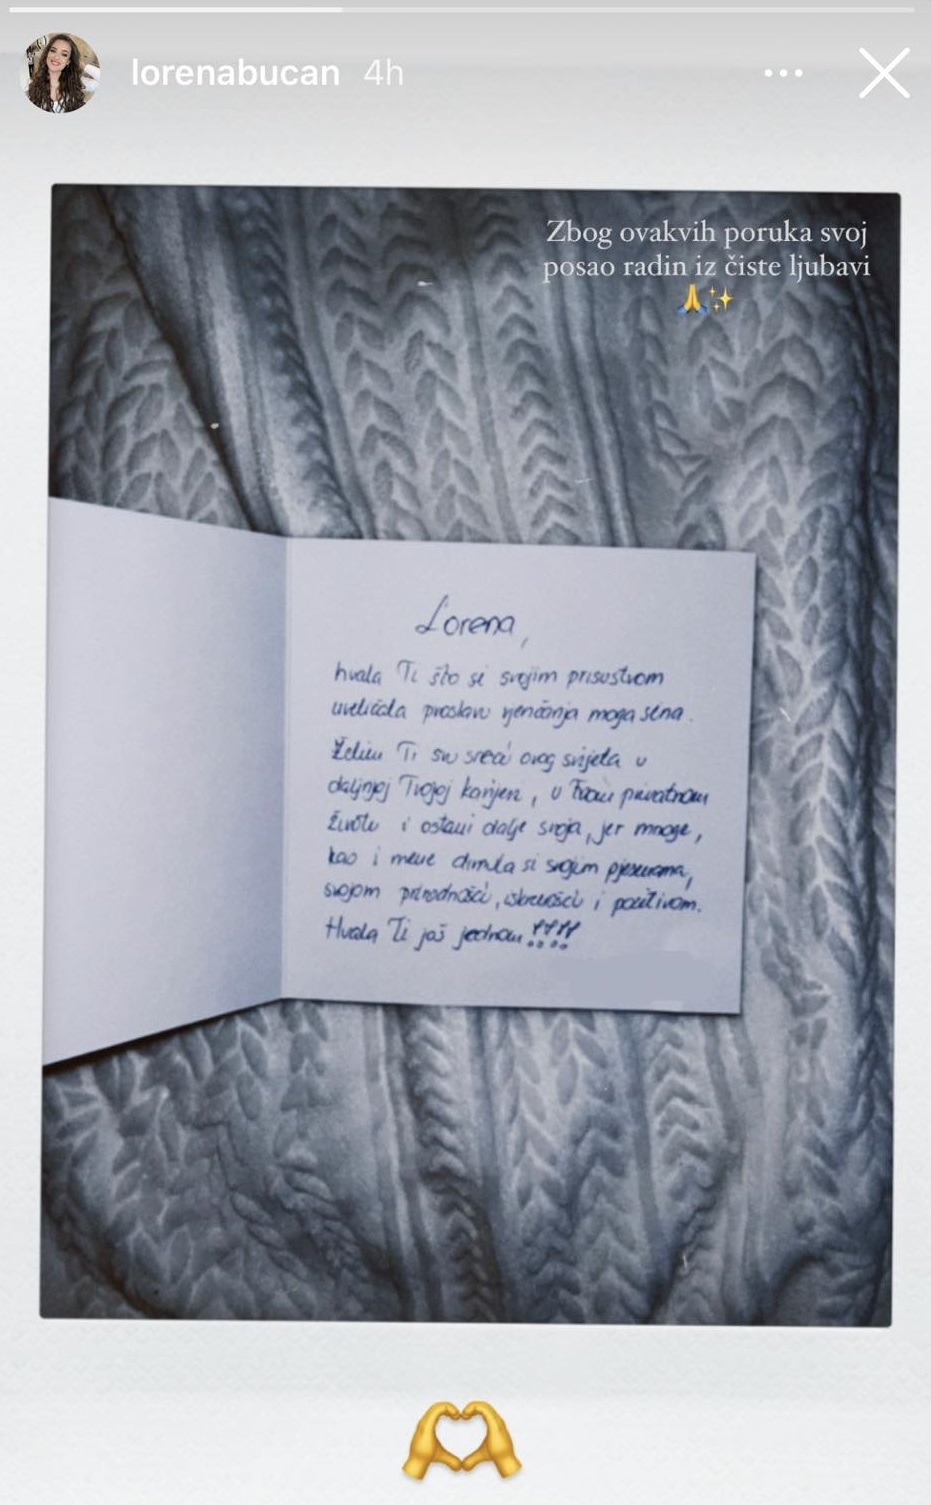 lorenabucan 4h
Zbog ovakvih poruka svoj
posao radin iz čiste ljubavi
🙏✨
Lorena,
hvala Ti što si svojim prisustvom
uveličala proslavu vjenčanja moga sina.
Želim Ti svu sreću ovog svijeta u
daljnjoj Tvojoj karijeri, u Tvom privatnom
životu i ostani dalje svoja, jer mnoge,
kao i mene dirnula si svojim pjesmama,
svojom prirodnošći, iskrenošći i pozitivom.
Hvala Ti još jednom!!!!
🫶